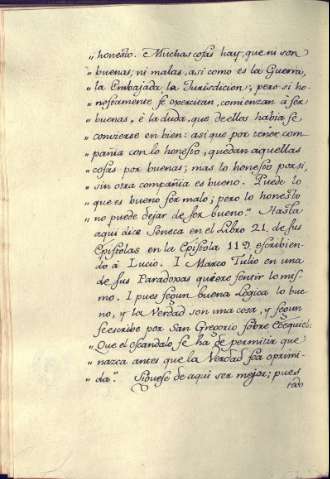 „ honesto. Muchas cosas hay, que ni son
„ buenas, ni malas, asi como es la Guerra,
„ la Embajada, la Jurisdicion; pero si ho-
„ nestamente se exercitan, comienzan a sèr
„ buenas, è la duda, que de ellos habia se
„ convierte en bien: asi que por tenèr com-
„ pañia con lo honesto, quedan aquellas
„ cosas por buenas; mas lo honesto por si,
„ sin otra compañia es bueno. Puede lo
„ que es bueno sèr malo; pero lo honesto
„ no puede dejar de sèr bueno." Hasta
aqui dice Seneca en el Libro 21. de sus
Epistolas en la Epistola 119. escribien-
do à Lucio. I Marco Tulio en una
de sus Paradoxas quiere sentir lo mis-
mo. I pues segun buena Logica lo bue-
no, y la Verdad son una cosa, y segun
se escribe por San Gregorio sobre Ecequiel:
„ Que el escandalo se ha de permitir que
„ nazca antes que la Verdad sea oprimi-
„ da". Siguese de aqui ser mejor; pues
todo